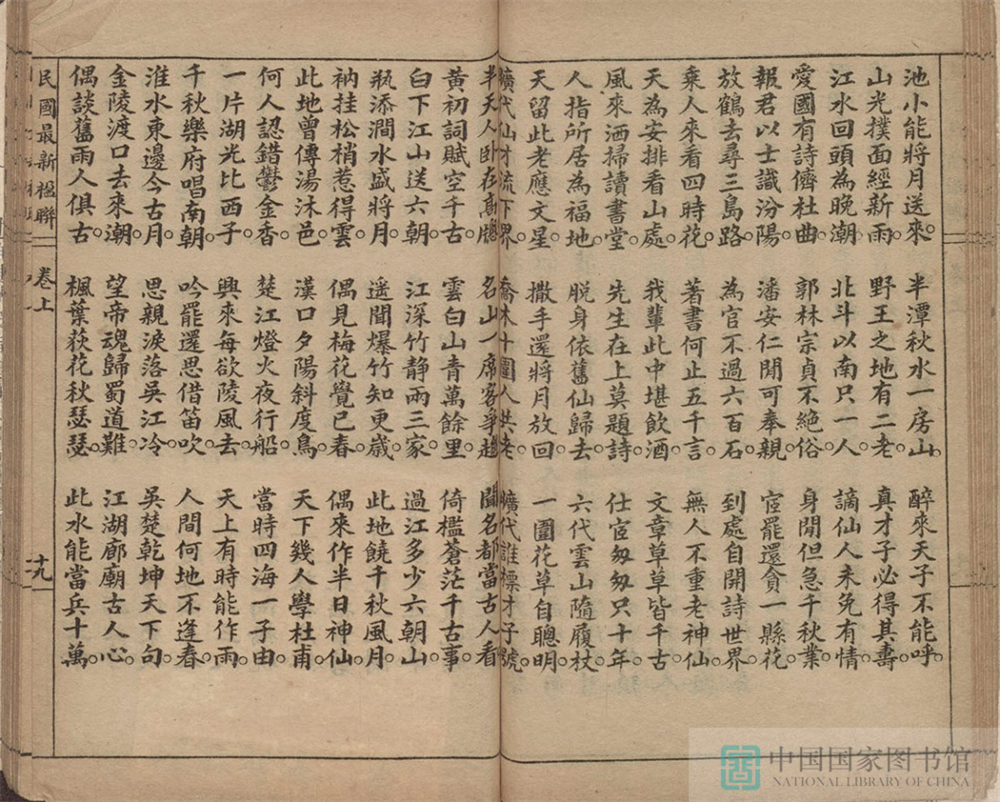 池小能將月送來。 半潭秋水一房山。 醉來天子不能呼。
山光撲面經新雨 野王之地有二老 真才子必得其壽
江水回頭為晚潮。 北斗以南只一人。 謫仙人未免有情。
愛國有詩儕杜曲 郭林宗貞不絕俗 身閒但急千秋業
報君以士識汾陽。 潘安仁閒可奉親。 宦罷還貪一縣花。
放鶴去尋三島路 為官不過六百石 到處自開詩世界
乘人來看四時花。 著書何止五千言。 無人不重老神仙。
天為安排看山處 我輩此中堪飲酒 文章草草皆千古
風來洒掃讀書堂。 先生在上莫題詩。 仕宦匆匆只十年。
人指所居為福地 脫身依舊仙歸去 六代雲山隨履杖
天留此老應文星。 撒手還將月放回。 一園花草自聰明。
曠代仙才流下界 喬木十圍人共老 曠代誰標才子號
半天人臥在高牕。 名山一席客爭趨。 聞名都當古人看。
黃初詞賦空千古 雲白山青萬餘里 倚檻蒼茫千古事
白下江山送六朝。 江深竹靜兩三家。 過江多少六朝山。
瓶添澗水盛將月 遥聞爆竹知更歲 此地饒千秋風月
衲挂松梢惹得雲。 偶見梅花覺已春。 偶來作半日神仙。
此地曾傳湯沐邑 漢口夕陽斜度鳥 天下幾人學杜甫
何人認錯鬱金香。 楚江燈火夜行船。 當時四海一子由。
一片湖光比西子 興來每欲陵風去 天上有時能作雨
千秋樂府唱南朝。 吟罷還思借笛吹。 人間何地不逢春。
淮水東邊今古月 思親淚落吳江冷 吳楚乾坤天下句
金陵渡口去來潮。 望帝魂歸蜀道難。 江湖廊廟古人心。
偶談舊雨人俱古 楓葉荻花秋瑟瑟 此水能當兵十萬
民國最新楹聯 卷上 十九
中国国家图书馆
NATIONAL LIBRARY OF CHINA